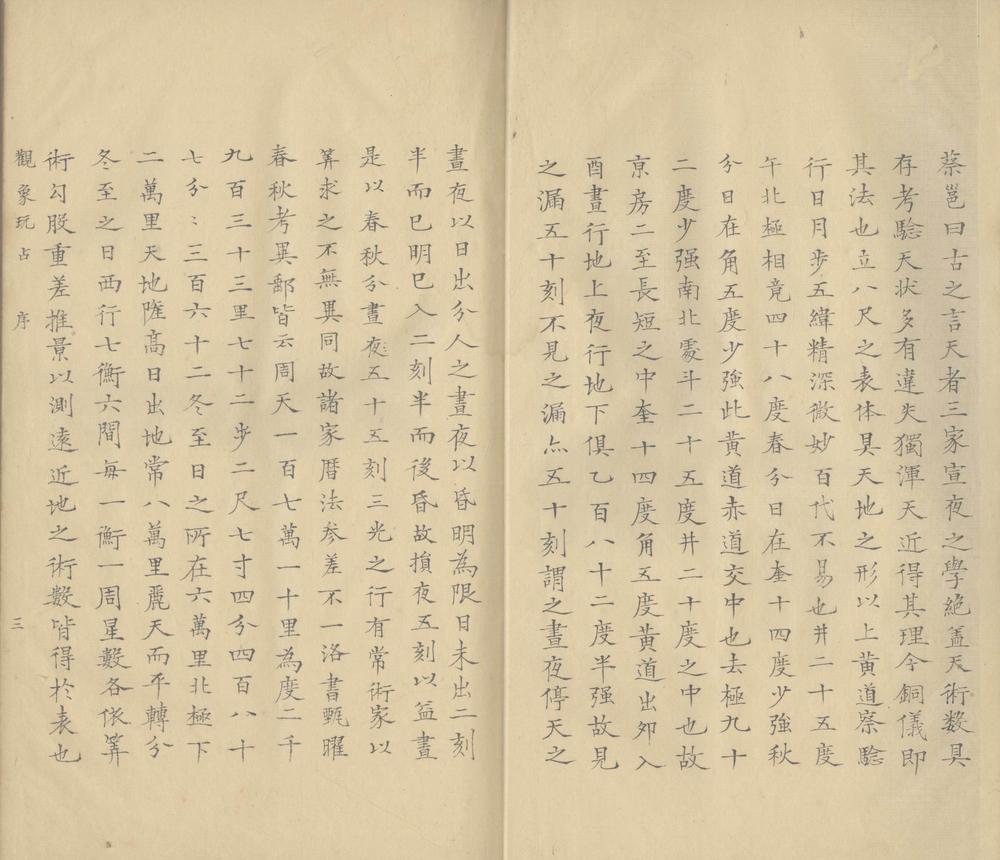 蔡邕曰古之言天者三家宣夜之學絕盖天術数具
存考驗天状多有違失獨渾天近得其理今銅儀即
其法也立八尺之表体具天地之形以上黄道察驗
行日月步五緯精深微妙百代不易也井二十五度
午北極相竟四十八度春分日在奎十四度少強秋
分日在角五度少強此黄道赤道交中也去極九十
二度少强南北處斗二十五度井二十度之中也故
京房二至長短之中奎十四度角五度黄道出夘入
酉晝行地上夜行地下俱乙百八十二度半强故見
之漏五十刻不見之漏亦五十刻謂之晝夜停天之
晝夜以日出分人之晝夜以昏明為限日未出二刻
半而已明已入二刻半而後昏故損夜五刻以益晝
是以春秋分晝夜五十五刻三光之行有常術家以
筭求之不無異同故諸家暦法参差不一洛書甄曜
春秋考異郵皆云周天一百七萬一十里為度二千
九百三十三里七十二步二尺七寸四分四百八十
七分〻三百六十二冬至日之所在六萬里北極下
二萬里天地隆高日出地常八萬里麗天而平轉分
冬至之日西行七衡六間每一衡一周星數各依筭
術勾股重差推景以測遠近地之術數皆得於表也
觀象玩占 序 三